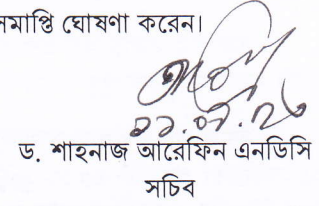 সমাপ্তি ঘোষণা করেন।
ড. শাহনাজ আরেফিন এনডিসি
সচিব